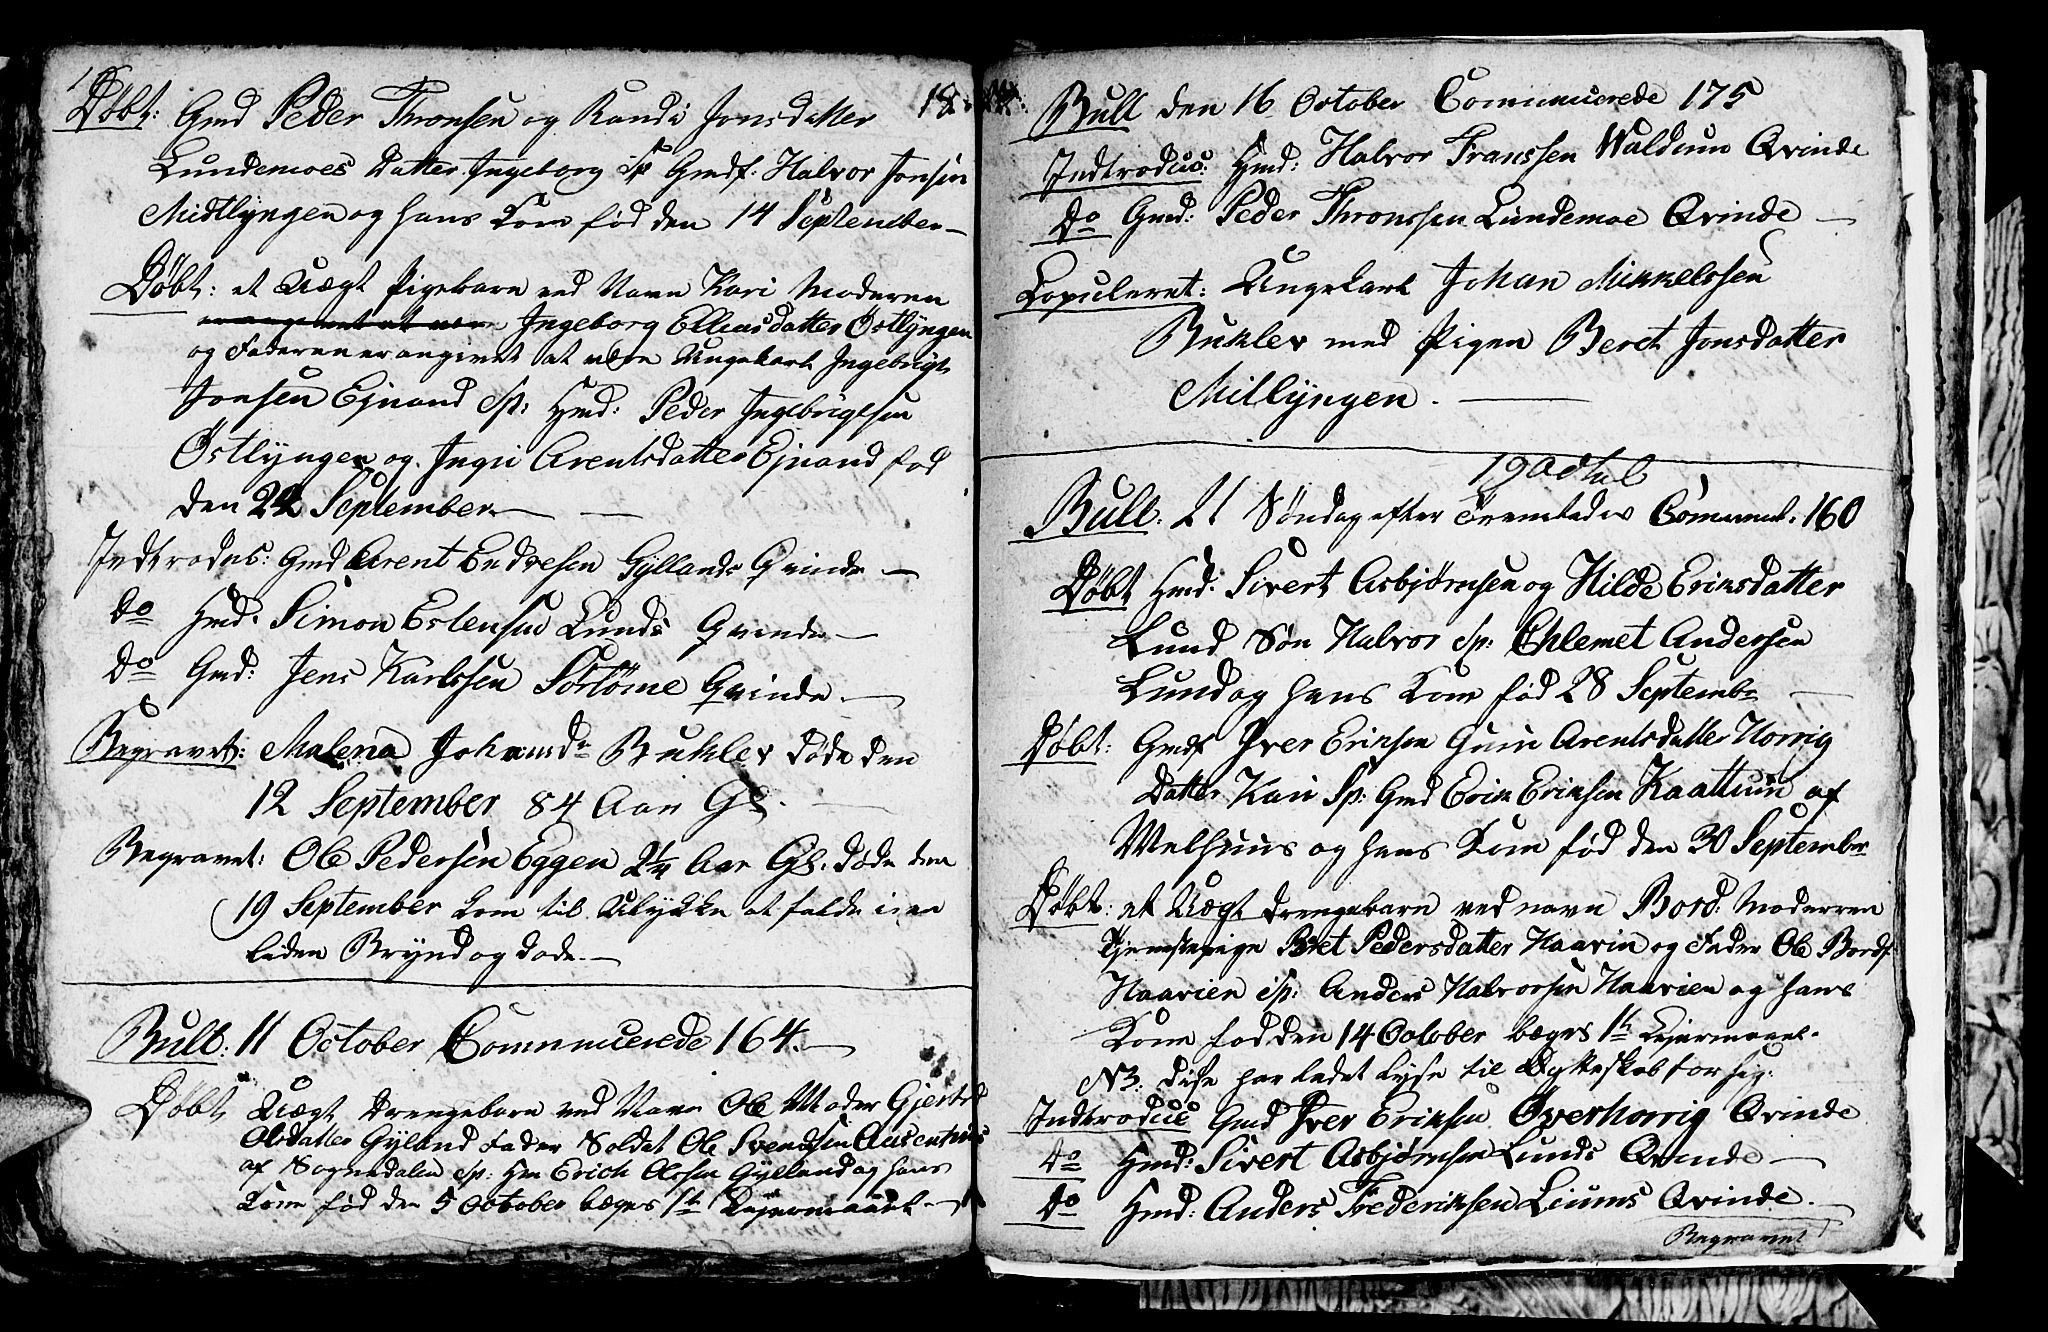 Døbt: Gmd Peder Thronsen og Randi Jonsdatter
Lundemoes datter Ingeborg Sp Gmdf: Halvor Jonsen
Midtlyngen og hans Kone fød den 14 September
Døbt: et Uægt Pigebarn ved Navn Kari Moderen
Ingeborg Ellensdatter Østlyngen
og Faderen er angivet at være Ungekarl Ingebrigt
Jonsen Ejnand Sp: Hmd: Peder Ingebrigtsen
Østlyngen og Ingri Arentsdatter Ejnand fød
den 24 September
Indtrodus: Gmd Arent Endresen Gyllands Qvinde
do Hmd. Simon Estensen Lunds Qvinde
do Gmd: Jens Karlssen Sørtømme Qvinde
Begravet: Malena Johansdr Buhlev døde den
12 September 84 Aar Gl.
Begravet: Ole Pedersen Eggen 2¼ Aar Gl. døde den
19 September kom til Ulykke at falde i en
liden Brynd og døde
Bull: 11 October Communicerede 164.
Døbt Uægt Drengebarn ved Navn Ole Moder Gjertrud
Olsdatter Gyland Fader Soldet Ole Svendsen
af Sognedalen Sp: Hm Erich Olssen Gylland og hans
Kone fød den 5 October bægges 1te Lejermaael
Bull den 16 October Communicerede 175
Indtroduc: Hmd: Halvor Franssen Waldum Qvinde
do Gmd: Peder Thronssen Lundemoe Qvinde
Copuleret: Ungekarl Johan Mikkelssen
Buhlev med Pigen Beret Jonsdatter
Midlyngen.
19 Octob
Bull: 21 Søndag efter Trenitades Comunic. 160
Døbt Hmd: Sivert Asbjørnsen og Hilde Eriksdatter
Lund Søn Halvor Sp: Ehlemet Andersen
Lund og hans Kone fød 28 Septembr
Døbt: Gmdf Iver Eriksen Guru Arentsdatter Horrig
Datter Kari Sp: Gmd Erik Eriksen Kaattum af
Melhuus og hans Kone fød den 30 September
Døbt: et Uægt Drengebarn ved navn Bord: Moderen
Tjenstepige Bret Pedersdatter Haavin og Fader Ole Bordf
Haavien Sp: Anders Halvorsen Haavien og hans
Kone fød den 14 October bægges 1te Lejermaael.
NB: disse har ladet lyse til Egteskab for sig.
Indtroduc Gmd Iver Eriksen Overhorrig Qvinde
do Hmd: Sivert Asbjørnsen Lunds Qvinde
do Hmd: Anders Frederiksen Liums Qvinde.
Begravet